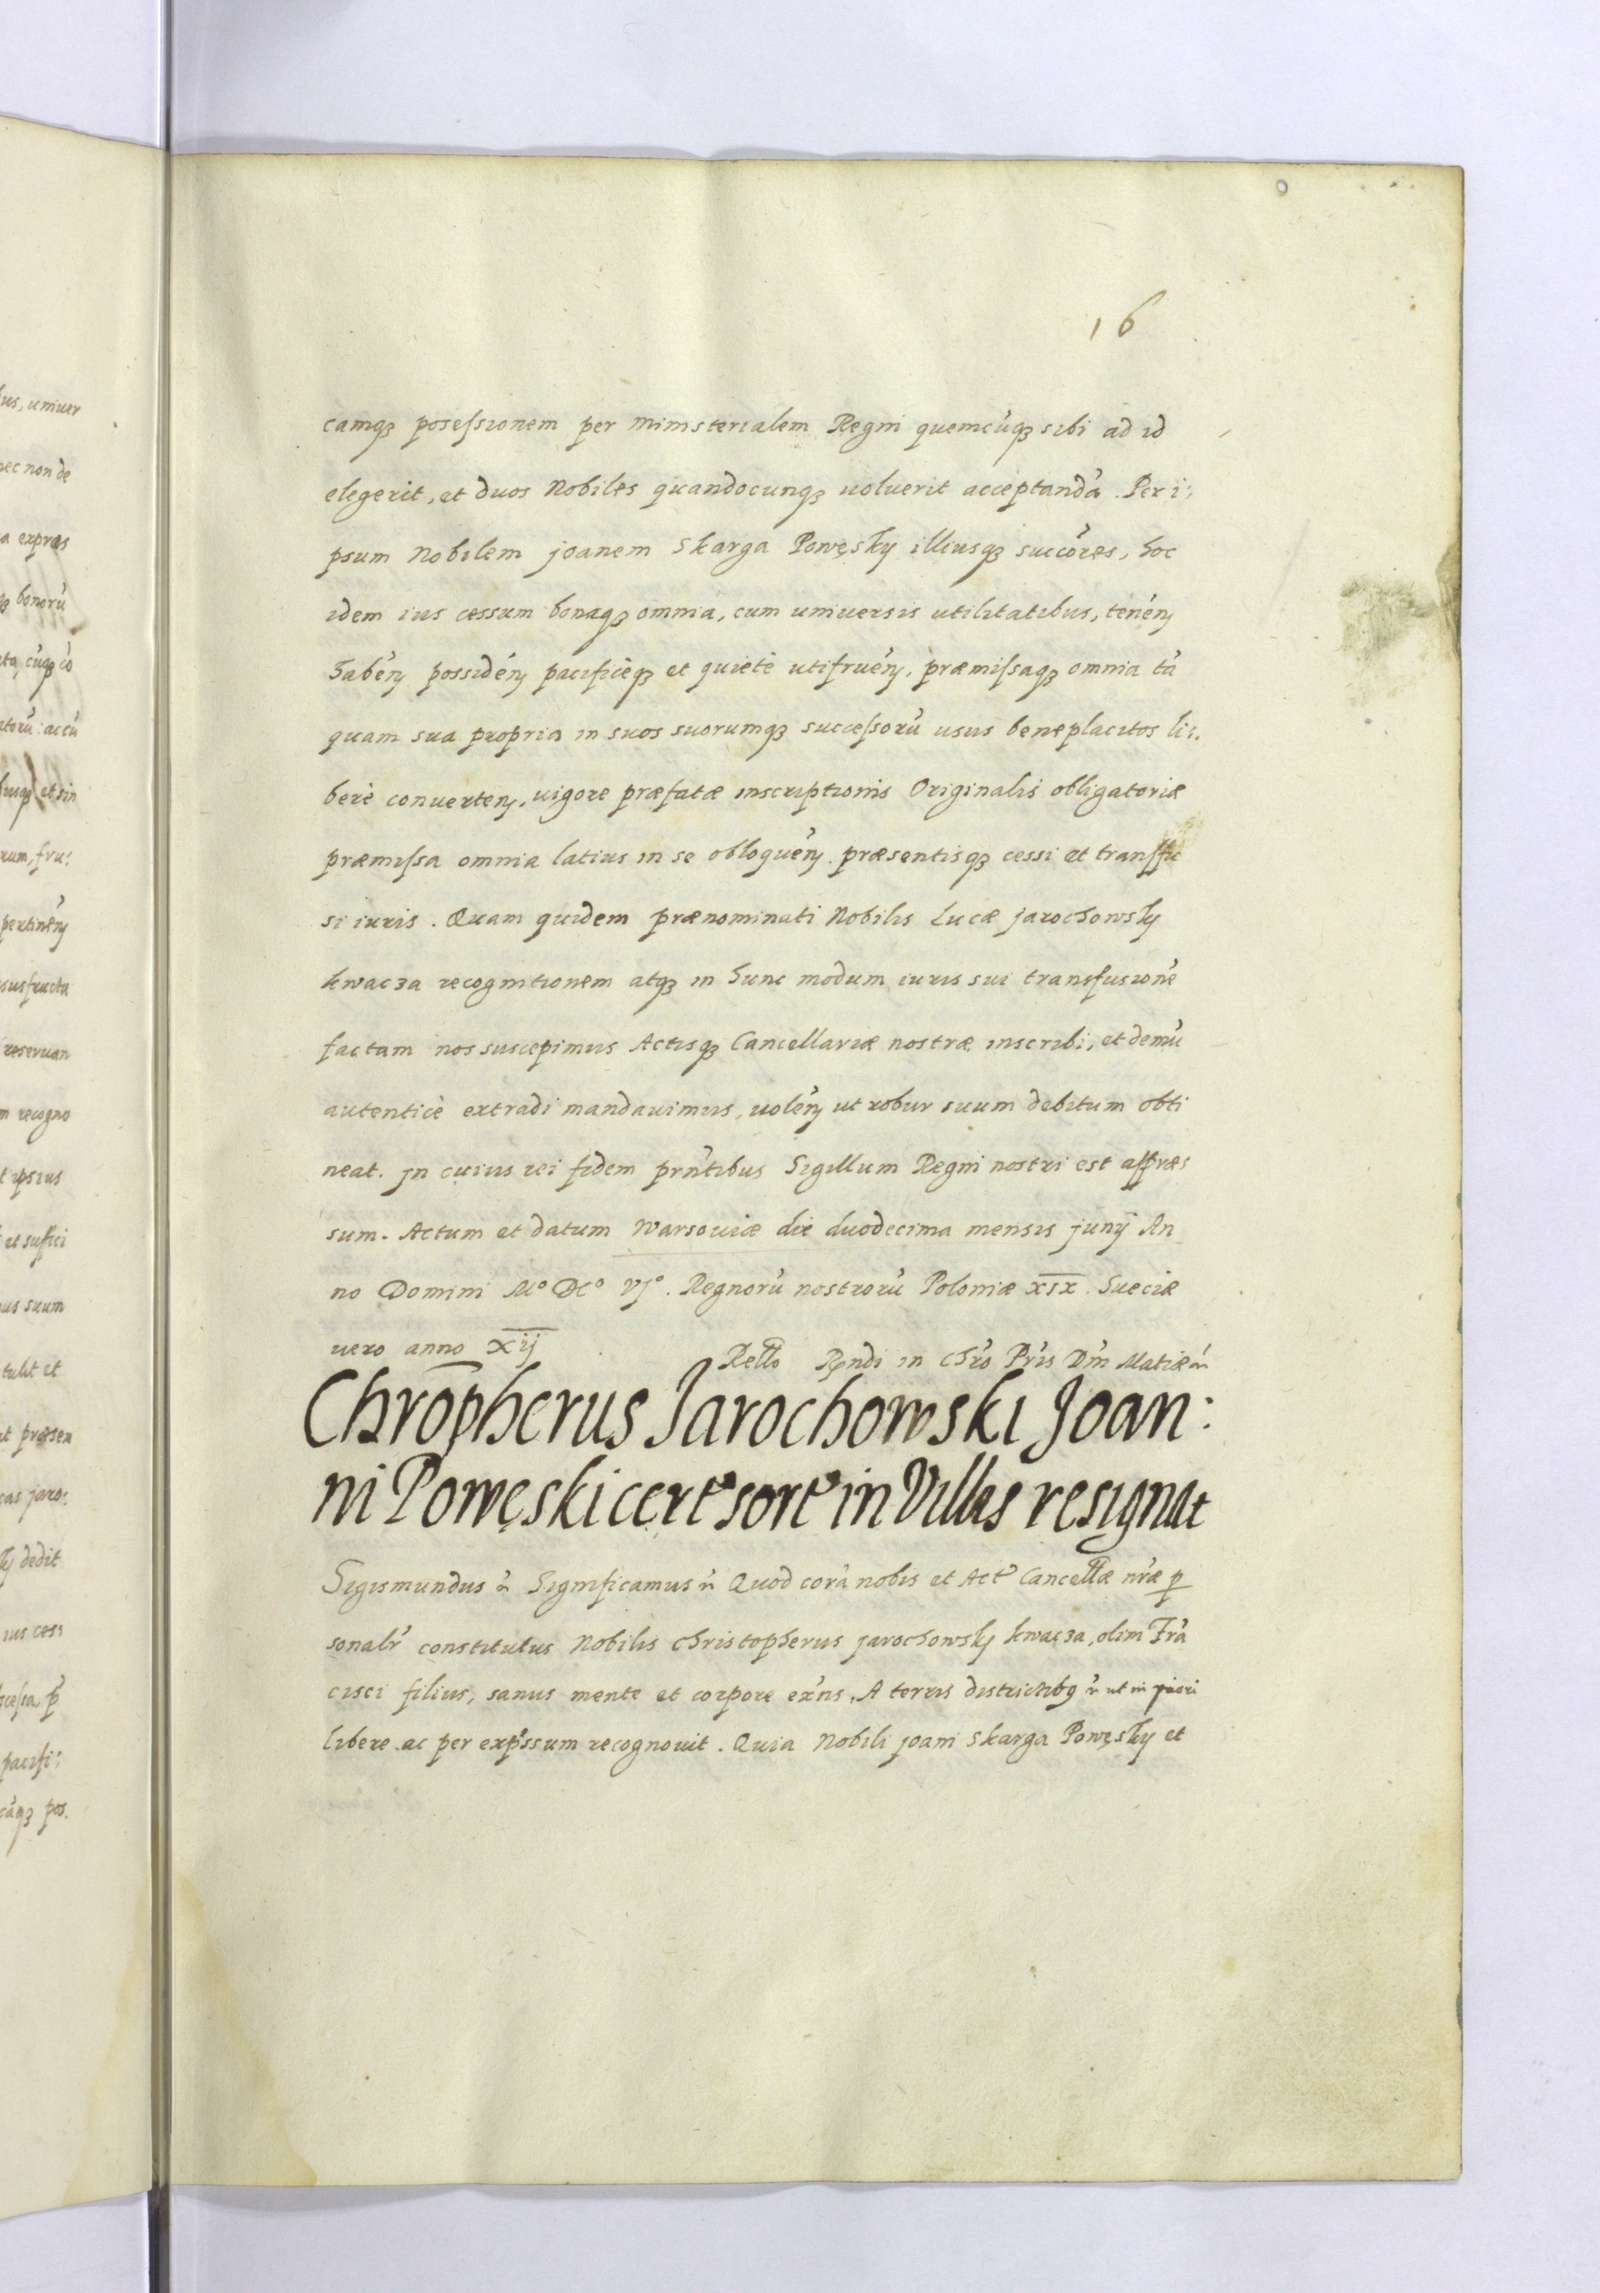 16
camqꝫ poseſsionem per Ministerialem Regni quemcúqꝫ sibi ad id
elegerit, et duos Nobiles quandocunqꝫ uoluerit acceptandã. Per i:
psum Nobilem Joanem Skarga Powęsky illiusqꝫ succóres, hoc
idem ius cessum bonaqꝫ omnia, cum uniuersis utilitatibus, teneń
habeń possideń pacificèqꝫ et quietè utifrueń, præmiſsaqꝫ omnia tã
quam sua propria in suos suorumqꝫ succeſsorũ usus beneplacitos li:
berè conuerteń, uigore præfatæ inscriptionis Originalis obligatoriæ
præmiſsa omnia latius in se obloqueń præsentisqꝫ cessi et transfu
si iuris. Quam quidem prænominati Nobilis Lucæ Jarochowsky
kwacza recognitionem atqꝫ in hunc modum iuris sui transfusionẽ
factam nos suscepimus Actisqꝫ Cancellariæ nostræ inscribi, et demũ
autenticè extradi mandauimus, uoleń ut robur suum debitum obti
neat. Jn cuius rei fidem prñtibus Sigillum Regni nostri est appræs
sum. Actum et datum Warsouiæ die duodecima mensis Junÿ An
no Domini Mº DCº VJº. Regnorũ nostrorũ Poloniæ xıx. Sueciæ
uero anno Xij
Rello Rñdi in Chrõ Pris Dñi Matiæ
Chropherus Jarochowski Joan:
ni Powęski cert sort in Villis resignat
Sigismundus Significamus Quod corã nobis et Act Cancellæ nræ p
sonalr constitutus Nobilis Christopherus Jarochowsky kwacza, olim Frã
cisci filius, sanus mente et corpore exñs, A terris districtibꝰ ut in priori
libere ac per expssum recognouit. Quia Nobili Joani Skarga Powęsky et